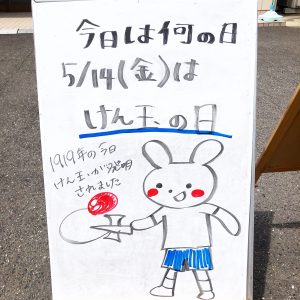 今日は何の日
5/14(金)は
けん玉の日
1919年の今日
けん玉が発明
されました